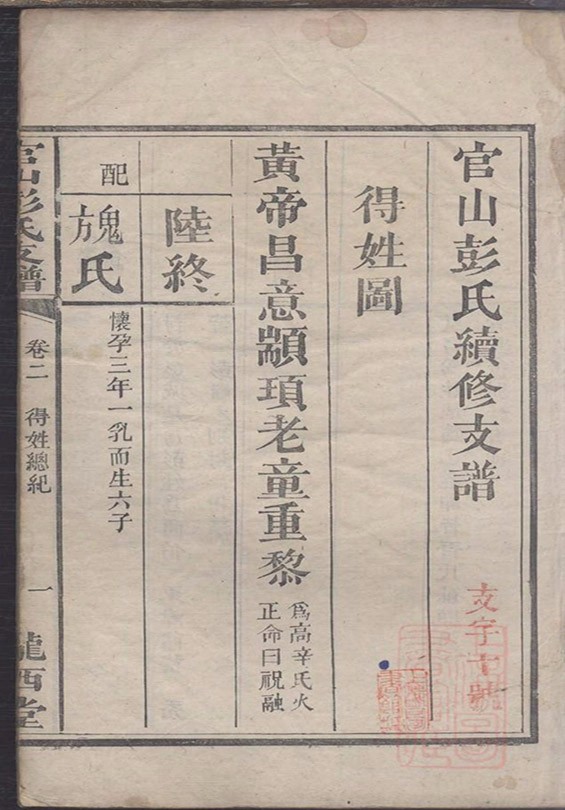 官山彭氏續修支譜
支字十號
得姓圖
黃帝昌意顓頊老童重黎
爲高辛氏火
正命曰祝融
陸終
配
媿氏
懷孕三年一乳而生六子
官山彭氏支譜
卷二
得姓總紀
一
隴西堂